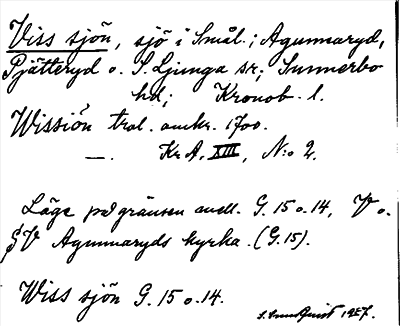 Viss sjön, sjö i Smål.; Agunnaryd,
Pjätteryd o. S. Ljunga sr; Sunnerbo
hd; Kronob. l.
Wissiön trol. omkr. 1700.
—. Kr A, XIII, N:o 2.
Läge på gränsen mell. G. 15 o. 14, V o.
SV Agunnaryds kyrka. (G. 15).
Wiss sjön G. 15 o. 14.
1927.